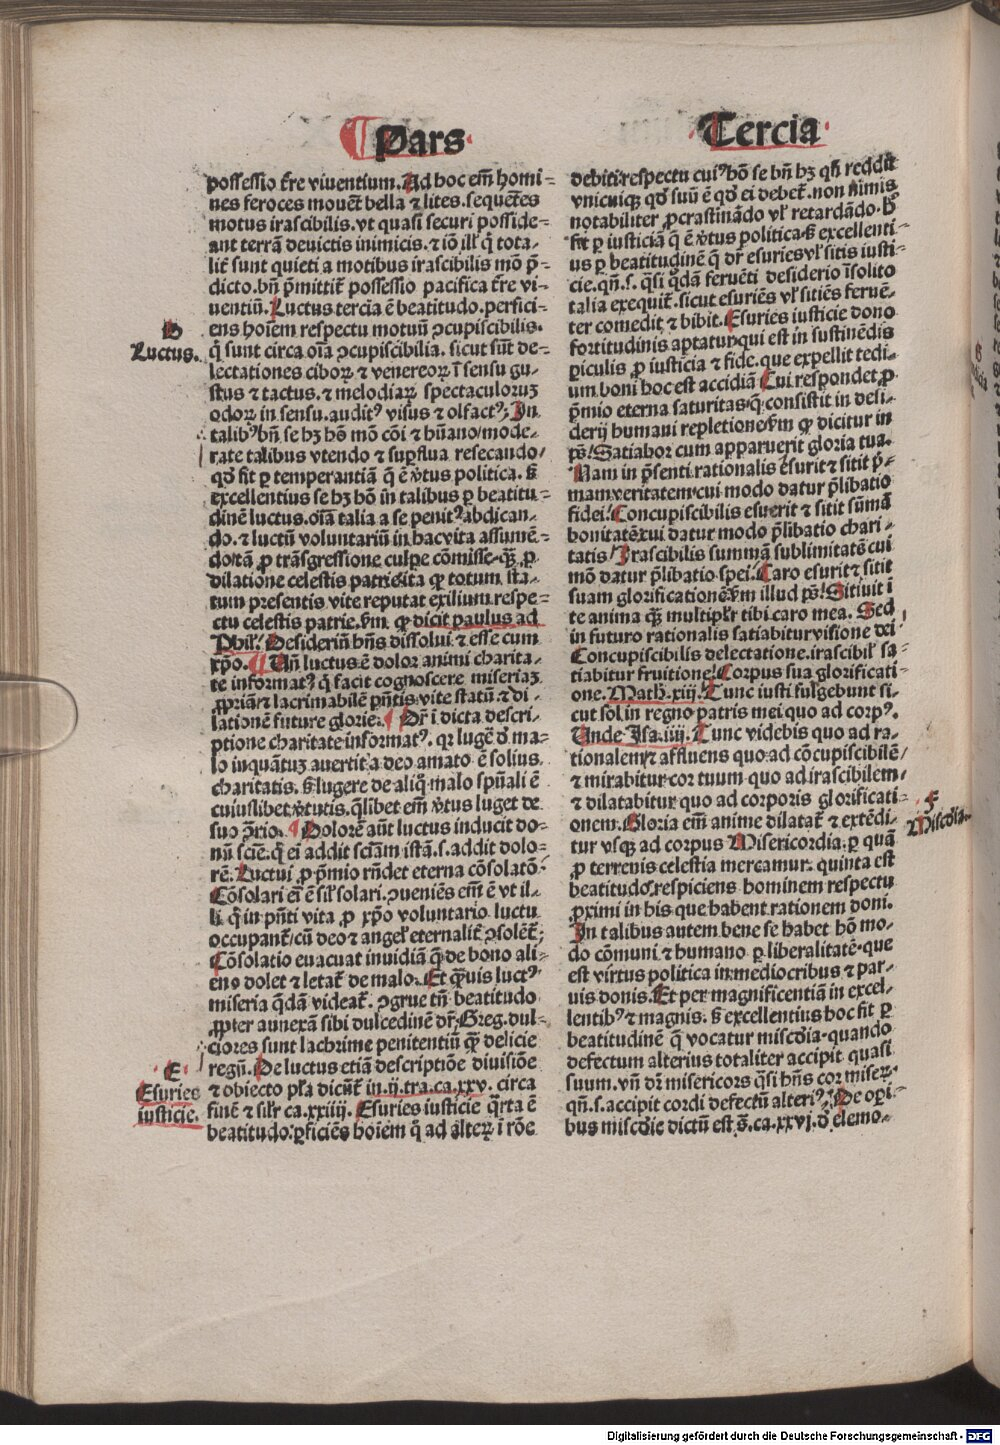 Pars
Tercia
possessio t̄re viuentium. Ad hoc em̄ homi-
nes feroces mouēt bella ⁊ lites. sequētes
motus irascibilis. vt quasi securi posside-
ant terrā deuictis inimicis. ⁊ iō ill' q̄ tota-
lit̄ sunt quieti a motibus irascibilis mō p̄-
dicto. bn̄ p̄mittit̄ possessio pacifica t̄re vi-
uentiū. Luctus tercia ē beatitudo. perfici-
D
Luctus.
ens hoīem respectu motuū ꝯcupiscibilis.
q̄ sunt circa oīa ꝯcupiscibilia. sicut sūt de-
lectationes ciboꝝ ⁊ venereoꝝ ī sensu gu-
stus ⁊ tactus. ⁊ melodiaꝝ spectaculorum
odoꝝ in sensu. auditꝰ visus ⁊ olfactꝰ. In
talibꝰ bn̄ se hꝫ hō mō cōi ⁊ hūano/mode-
rate talibus vtendo ⁊ suꝑflua resecando/
qd̄ fit ꝑ temperantiā q̄ ē v̄tus politica. s̄
excellentius se hꝫ hō in talibus ꝑ beatitu-
dinē luctus. oīa talia a se penitꝰ abdican-
do. ⁊ luctū voluntariū in hac vita assumē-
do tā ꝓ trāsgressione culpe cōmisse. qȝ̄ ꝓ
dilatione celestis patrie. ita ꝙ totum sta-
tum presentis vite reputat exilium respe-
ctu celestis patrie. v̄m ꝙ dicit paulus ad
Phil'. Desideriū hn̄s dissolui ⁊ esse cum
xp̄o. ¶ Vn̄ luctus ē dolor animi charita-
te informatꝰ q̄ facit cognoscere miseriaꝫ
ꝓpriā ⁊ lacrimabilē pn̄tis vite statū ⁊ di-
lationē future glorie. ¶ Dr̄ i dicta descri-
ptione charitate informatꝰ. qꝛ lugē d̄ ma-
lo inquātuꝫ auertit a deo amato ē solius
charitatis. s̄ lugere de aliq̄ malo spūali ē
cuiuslibet v̄tutis. q̄libet em̄ v̄tus luget de
suo ꝯ̄rio. ¶ Dolorē aūt luctus inducit do-
nū sciē. q̄ ei addit sciam istā. s. addit dolo-
rē. Luctui ꝓ p̄mio rn̄det eterna cōsolatō.
Cōsolari ei ē sil' solari. ꝯueniēs em̄ ē vt il-
li q̄ in pn̄ti vita ꝓ xp̄o voluntario luctu
occupant̄/cū deo ⁊ angel' eternalit̄ ꝯsolēt̄;
Cōsolatio euacuat inuidiā q̄ de bono ali-
eno dolet ⁊ letat̄ de malo. Et q̄uis luctꝰ
miseria q̄dā videat̄. ꝯgrue tn̄ beatitudo
ꝓpter annexā sibi dulcedinē dr̄. Greg. dul-
ciores sunt lachrime penitentiū q̄ȝ delicie
regū. De luctus etiā descriptiōe diuisiōe
E
Esuries
iusticie.
⁊ obiecto pl'a dicūt̄ in .ij. tra. ca. xxv. circa
finē ⁊ sil'r ca. xxiiij. Esuries iusticie q̄rta ē
beatitudo: ꝑficiēs hoīem q̄ ad alteꝝ i rōe
debiti respectu cuiꝰ hō se bn̄ hꝫ qn̄ reddit
vnicuiqꝫ qd̄ suū ē qd̄ ei debet̄. non nimis
notabiliter ꝓcrastinādo vl' retardādo. h̄
fit ꝑ iusticiā q̄ ē v̄tus politica. s̄ excellenti-
us ꝑ beatitudinē q̄ dr̄ esuries vl' sitis iusti-
cie. qn̄. s. q̄si q̄dā feruēti desiderio īsolito
talia exequit̄. sicut esuriēs vl' sitiēs feruē-
ter comedit ⁊ bibit. Esuries iusticie dono
fortitudinis aptatur. qui est in sustinēdis
ꝑiculis ꝓ iusticia ⁊ fide. que expellit tedi-
um boni hoc est accidiā Cui respondet ꝓ
p̄mio eterna saturitas. q̄ consistit in desi-
derij humani repletione. v̄m ꝙ dicitur in
ps̄. Satiabor cum apparuerit gloria tua.
Nam in p̄senti rationalis esurit ⁊ sitit p̄-
mam veritatem. cui modo datur p̄libatio
fidei. Concupiscibilis esuerit ⁊ sitit sūmā
bonitatē. cui datur modo p̄libatio chari-
tatis. Irascibilis summā sublimitatē cui
mō datur p̄libatio spei. Caro esurit ⁊ sitit
suam glorificationē. v̄m illud ps̄. Sitiuit ī
te anima qȝ̄ multipl'r tibi caro mea. Sed
in futuro rationalis satiabitur visione dei
Concupiscibilis delectatione. irascibil' sa-
tiabitur fruitione. Corpus sua glorificati-
one. Math. xiij. Tunc iusti fulgebunt si-
cut sol in regno patris mei quo ad corpꝰ.
Unde Isa. iiij. Tunc videbis quo ad ra-
tionalem. ⁊ affluens quo ad cōcupiscibilē/
⁊ mirabitur cor tuum quo ad irascibilem/
⁊ dilatabitur quo ad corporis glorificati-
onem. Gloria em̄ anime dilatat̄ ⁊ extēdi-
F
Miscd'ia.
tur vsqꝫ ad corpus Misericordia. ꝑ quā
ꝓ terrenis celestia mercamur. quinta est
beatitudo. respiciens hominem respectu
ꝓximi in his que habent rationem doni.
In talibus autem bene se habet hō mo-
do cōmuni ⁊ humano ꝑ liberalitatē. que
est virtus politica in mediocribus ⁊ par-
uis donis. Et per magnificentiā in excel-
lentibꝰ ⁊ magnis. s̄ excellentius hoc fit ꝑ
beatitudinē q̄ vocatur miscd̄ia. quando
defectum alterius totaliter accipit quasi
suum. vn̄ d̄ misericors q̄si hn̄s cor miseꝝ.
qn̄. s. accipit cordi defectū alteriꝰ. De opi-
bus miscd̄ie dictū est s̄. ca. xxvj. d̄ elemo-
Digitalisierung gefördert durch die Deutsche Forschungsgemeinschaft - DFG